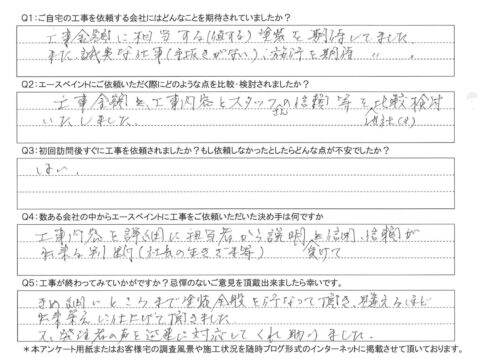 Q1：ご自宅の工事を依頼する会社にはどんなことを期待されていましたか？
工事金額に相当する(値する)塗装を期待してました
また、誠実な仕事(手抜きがない)、施行を期待 〃 。
Q2：エースペイントにご依頼いただく際にどのような点を比較・検討されましたか？
工事金額と、工事内容とスタッフさんの信頼等を比較検討
いたしました。 他社(の)
Q3：初回訪問後すぐに工事を依頼されましたか？もし依頼しなかったとしたらどんな点が不安でしたか？
はい、
Q4：数ある会社の中からエースペイントに工事をご依頼いただいた決め手は何ですか
工事内容を詳細に担当者から説明を 信頼が
出来る 判断 (社長の生きざま等)
Q5：工事が終わってみていかがですか？忌憚のないご意見を頂戴出来ましたら幸いです。
きめ細いところまで塗装全般を行なって頂き、見違えるほど
出来栄えに仕上げて頂きました
又、発注者の声を迅速に対応してくれ助りました。
＊本アンケート用紙またはお客様宅の調査風景や施工状況を随時ブログ形式のインターネットに掲載させて頂いております。